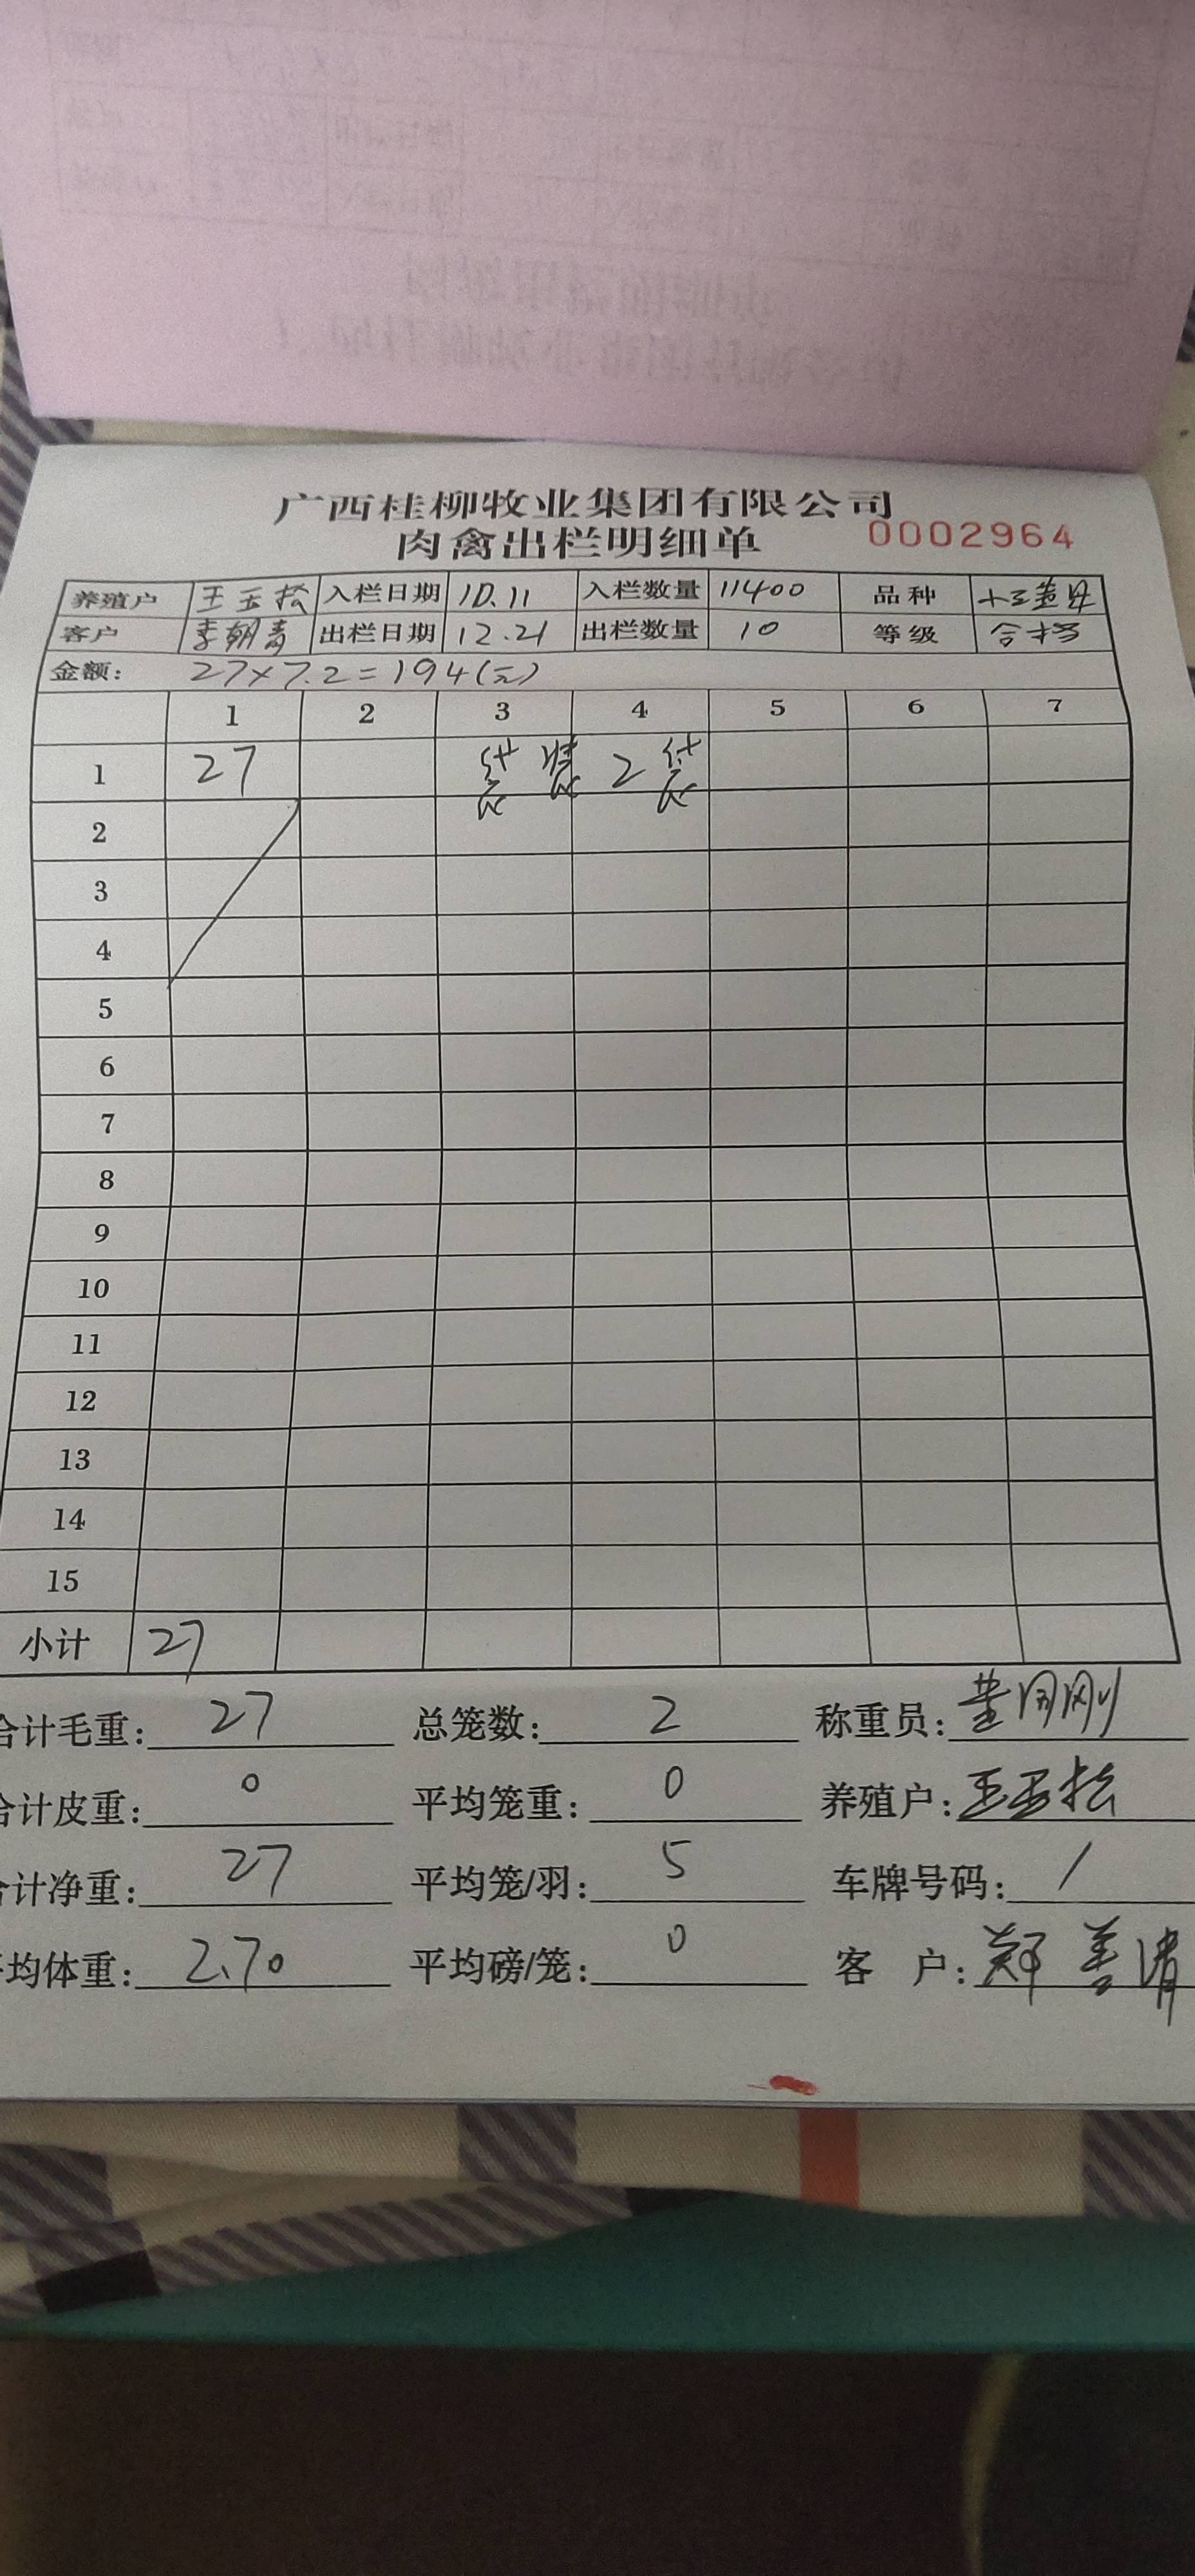 广西桂柳牧业集团有限公司
肉禽出栏明细单 0002964
养殖户 王玉松 入栏日期 10.11 入栏数量 11400 品种
客户 李朝青 出栏日期 12.21 出栏数量 10 等级 合格
金额: 27×7.2=194(元)
1 2 3 4 5 6 7
1 27 袋装2袋
2
3
4
5
6
7
8
9
10
11
12
13
14
15
小计 27
合计毛重: 27 总笼数: 2 称重员:
合计皮重: 0 平均笼重: 0 养殖户: 王玉松
合计净重: 27 平均笼/羽: 5 车牌号码: /
平均体重: 2.70 平均磅/笼: 0 客 户: 郑善清